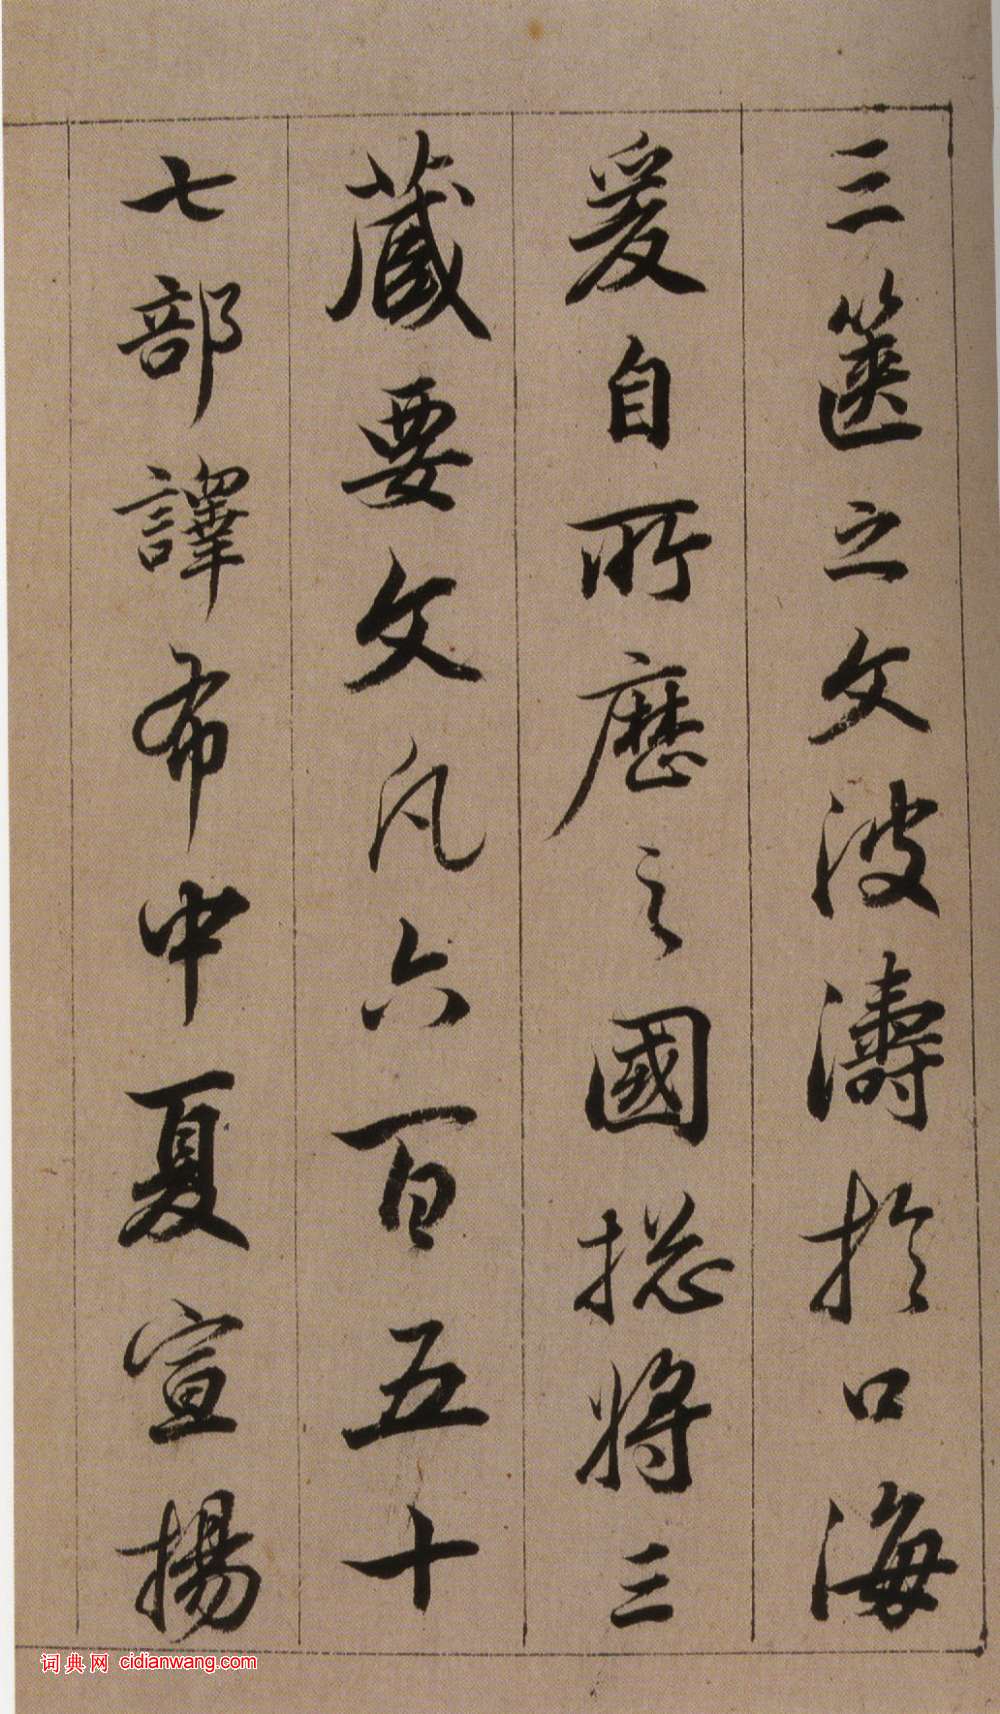 三篋之文波濤於口海
爰自所歷之國揔將三
藏要文凡六百五十
七部譯布中夏宣揚
词典网 cidianwang.com